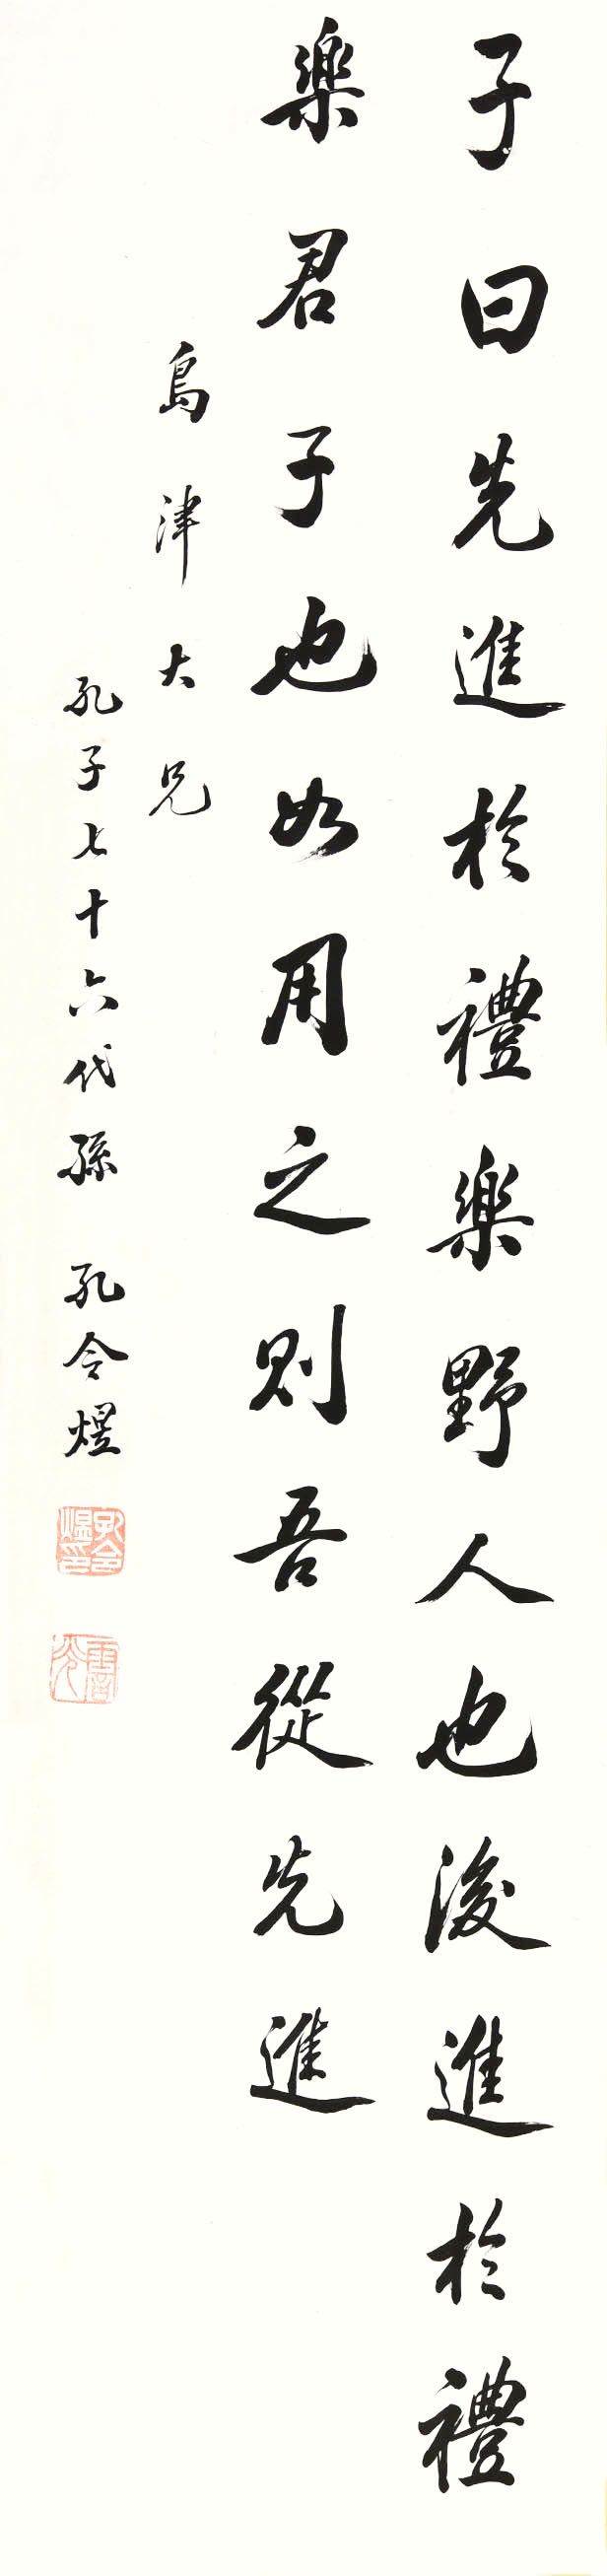 子曰先進於禮樂野人也後進於禮
樂君子也如用之則吾從先進
島津大兄
孔子七十六代孫 孔令煜
孔令煜印